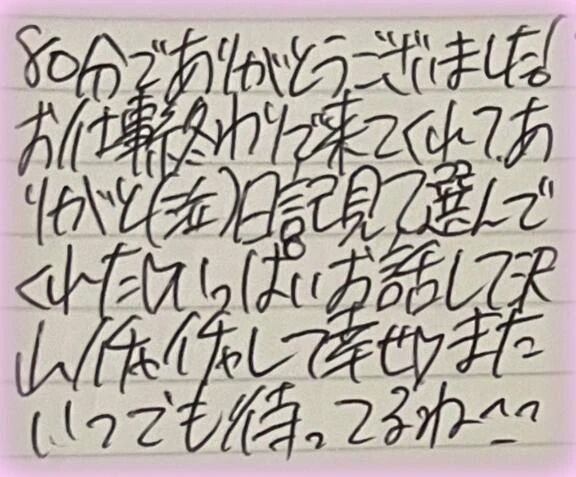 80分でありがとうございました!
お仕事終わりで来てくれてあ
りがと(泣)日記見て選んで
くれたりいっぱいお話して沢
山イチャイチャして幸せりまた
いつでも待ってるね^^